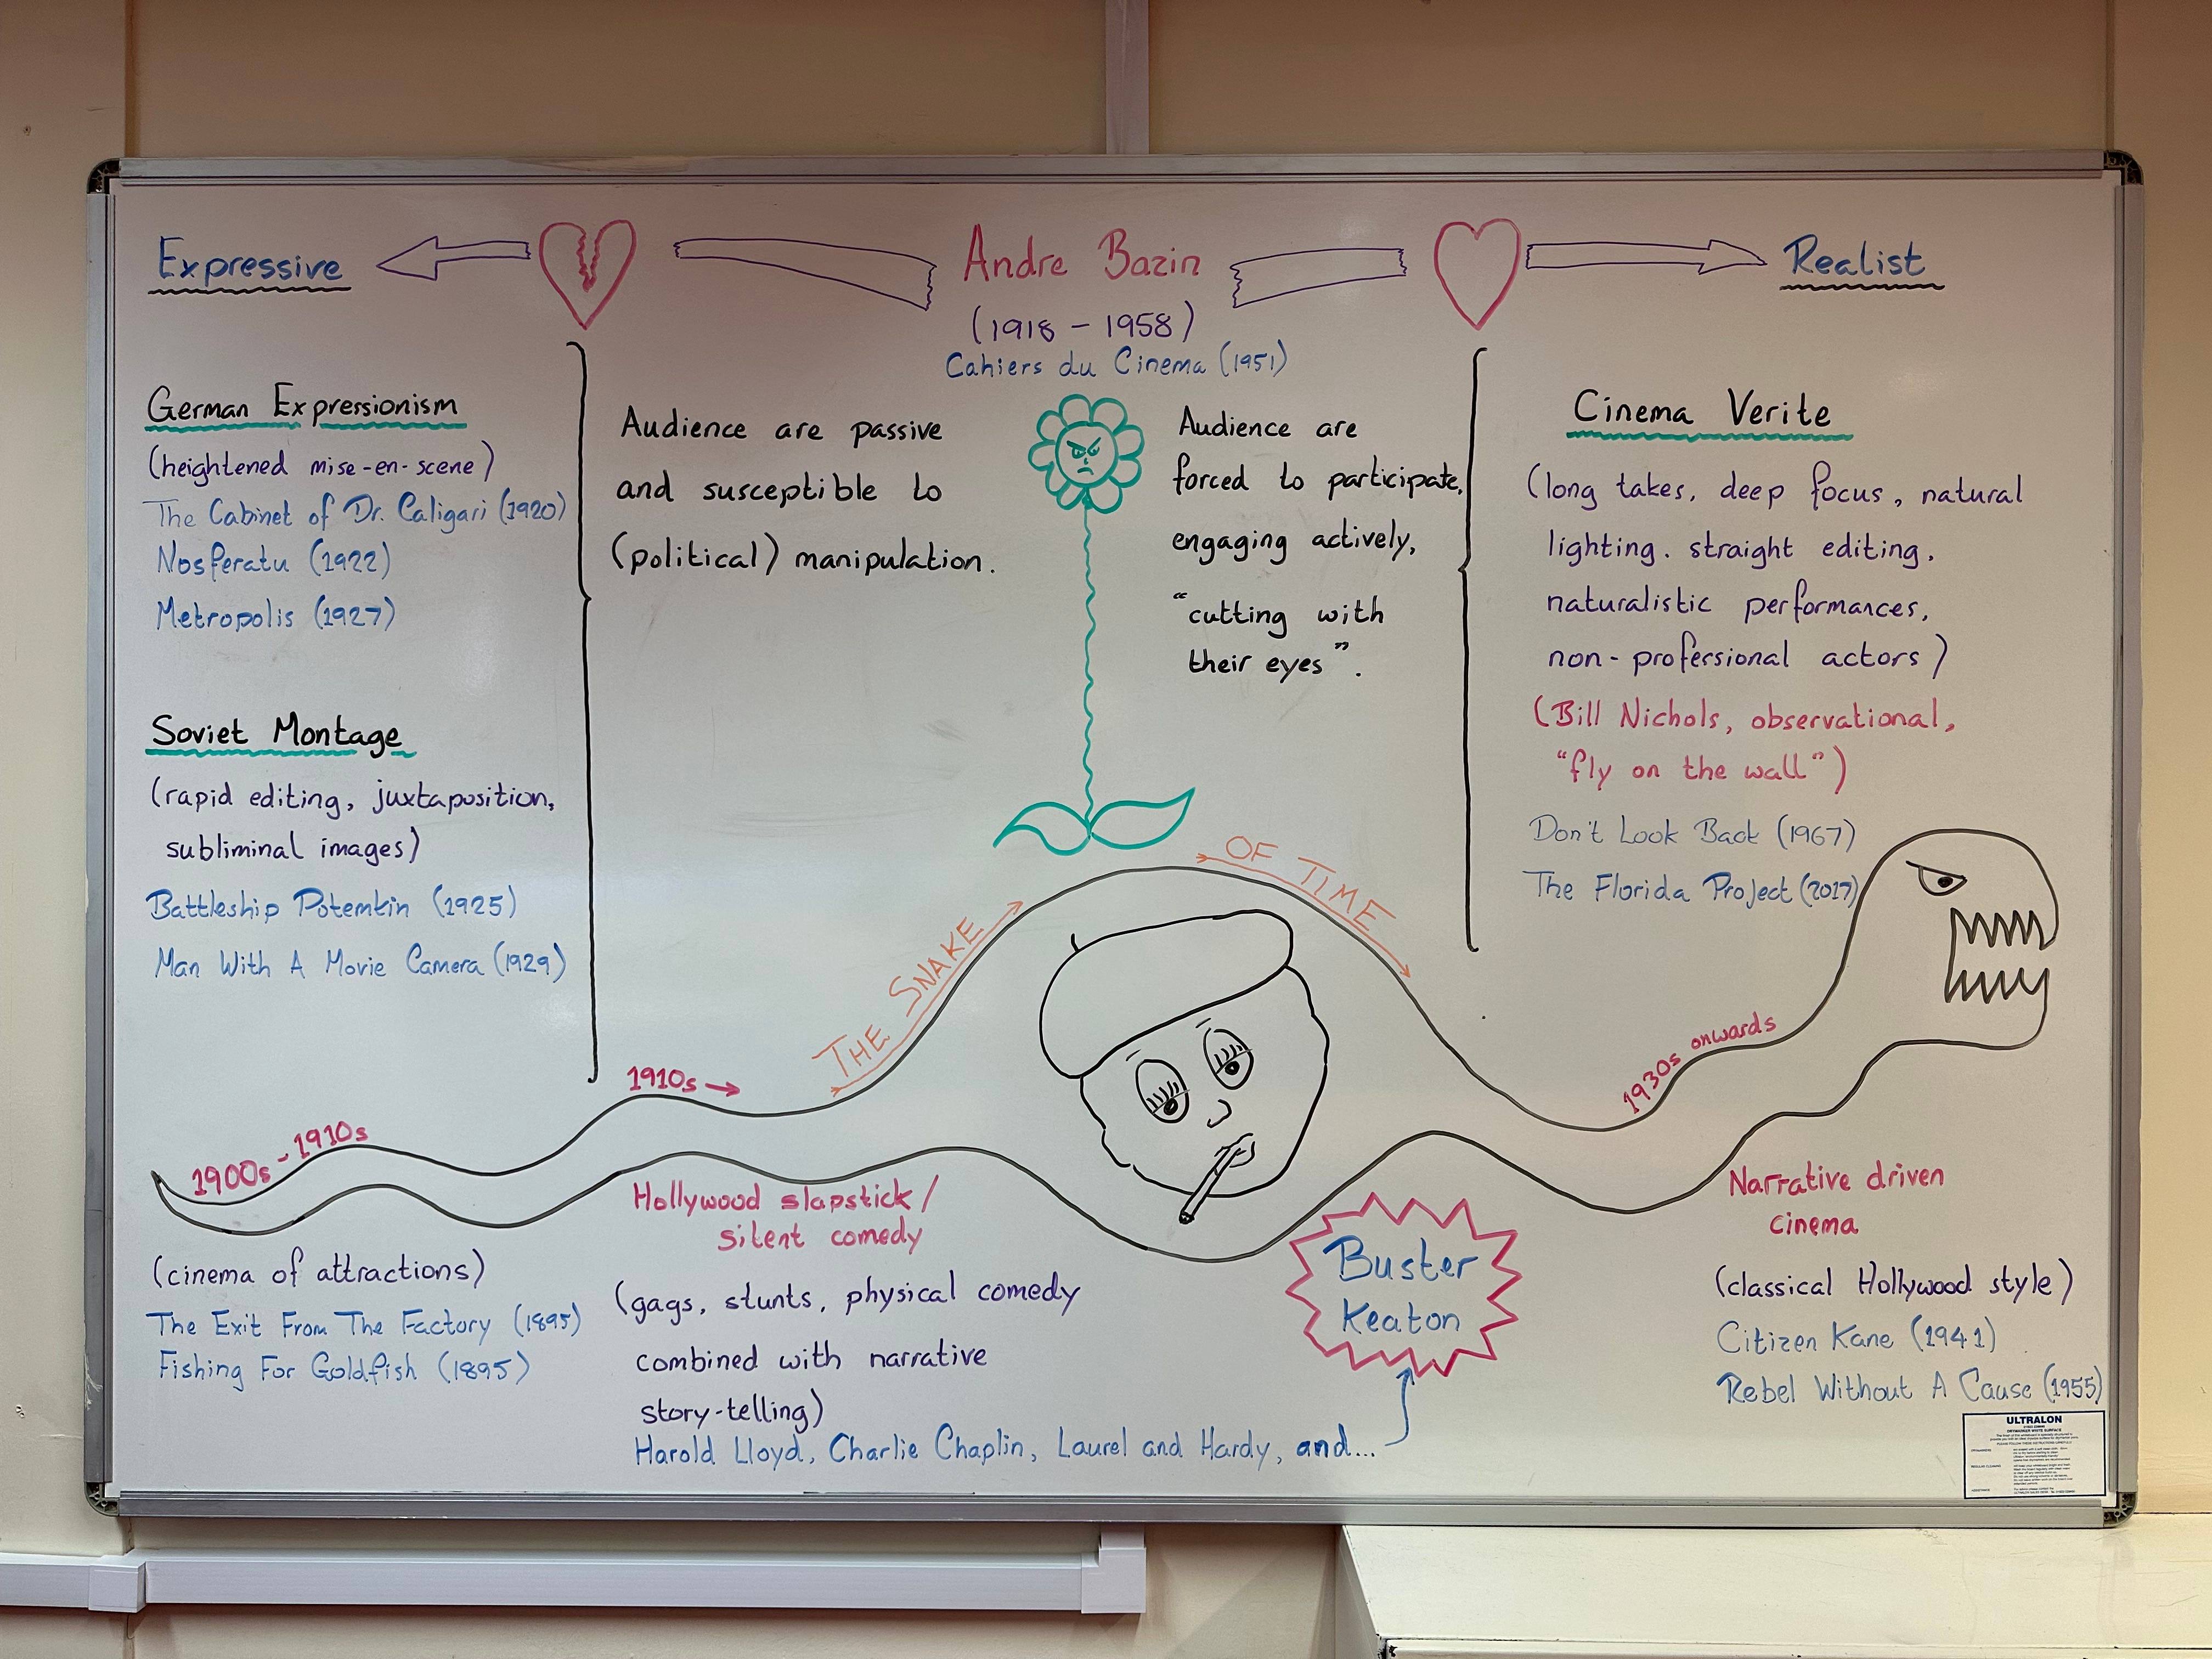 Expressive
Andre Bazin
(1918 - 1958)
Cahiers du Cinema (1951)
Realist
German Expressionism
(heightened mise-en-scene)
The Cabinet of Dr. Caligari (1920)
Nosferatu (1922)
Metropolis (1927)
Soviet Montage
(rapid editing, juxtaposition,
subliminal images)
Battleship Potemkin (1925)
Man With A Movie Camera (1929)
Audience are passive
and susceptible to
(political) manipulation.
Audience are
forced to participate,
engaging actively,
"cutting with
their eyes".
Cinema Verite
(long takes, deep focus, natural
lighting. straight editing,
naturalistic performances,
non-professional actors)
(Bill Nichols, observational,
"fly on the wall")
Don't Look Back (1967)
The Florida Project (2017)
THE SNAKE OF TIME
1900s - 1910s
1910s
1930s onwards
(cinema of attractions)
The Exit From The Factory (1895)
Fishing For Goldfish (1895)
Hollywood slapstick/
silent comedy
(gags, stunts, physical comedy
combined with narrative
story-telling)
Harold Lloyd, Charlie Chaplin, Laurel and Hardy, and...
Buster
Keaton
Narrative driven
cinema
(classical Hollywood style)
Citizen Kane (1941)
Rebel Without A Cause (1955)
ULTRALON
DRYMARKER WHITE SURFACE